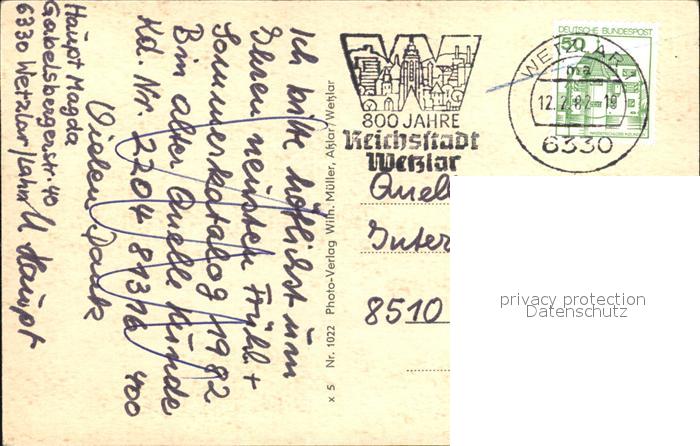 Haupt Magda
Gabelsbergerstr. 40
6330 Wetzlar/Lahn
Ich bitte höflichst um
Ihren neusten Früh. +
Sommerkatalog 1982
Bin alter Quelle Kunde
Kd. Nr. 2204 81316 400
Vielen Dank
M. Haupt
x 5 Nr. 1022 Photo-Verlag Wilh. Müller, Aßlar/Wetzlar
800 JAHRE
Reichsstadt
Wetzlar
DEUTSCHE BUNDESPOST
50
WETZLAR
ma
12.2.82-19
6330
Quell
Inter
8510
privacy protection
Datenschutz